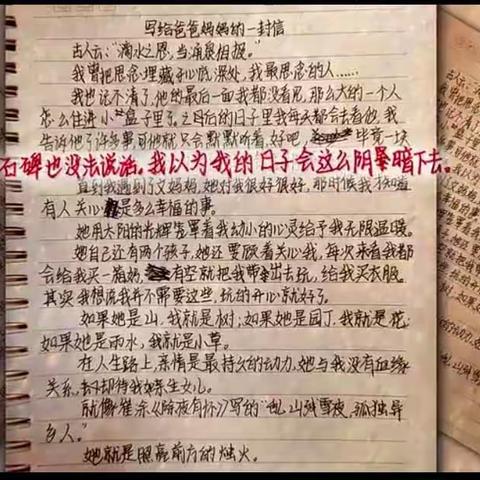 写给爸爸妈妈的一封信
古人云:“滴水之恩,当涌泉相报。”
我曾把思念埋藏于心底深处,我最思念的人……
我也记不清了,他的最后一面我都没看见,那么大的一个人
怎么住进小盒子里了,之后的日子里我每天都会去看他,我
告诉他了许多事,可他就只会默默听着,好吧,毕竟一块
石碑也没法说话。我以为我的日子会这么阴暗下去。
直到我遇到了文妈妈,她对我很好很好,那时候我才知道
有人关心是多么幸福的事。
她用太阳的光辉笼罩着我幼小的心灵给予我无限温暖。
她自己还有两个孩子,她还要顾着关心我,每次来看我都
会给我买一箱奶,有空就把我带出去玩,给我买衣服。
其实我想说我并不需要这些,玩的开心就好了。
如果她是山,我就是树;如果她是园丁,我就是花;
如果她是雨水,我就是小草。
在人生路上,亲情是最持久的动力,她与我没有血缘
关系,却待我如亲生女儿。
就像崔涂《除夜有怀》写的“乱山残雪夜,孤独异
乡人。”
她就是照亮前方的烛火。